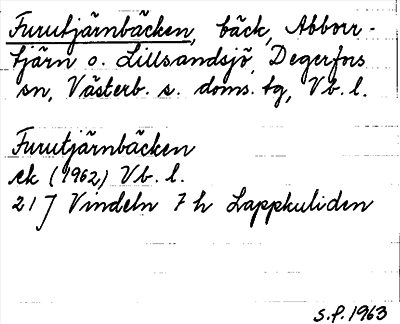 Furutjärnbäcken, bäck, Abborr-
tjärn o. Lillsandsjö, Degerfors
sn, Västerb. s. doms. tg, Vb. l.
Furutjärnbäcken
ek (1962) Vb. l.
21J Vindeln 7 h Lappkuliden
S.f. 1963